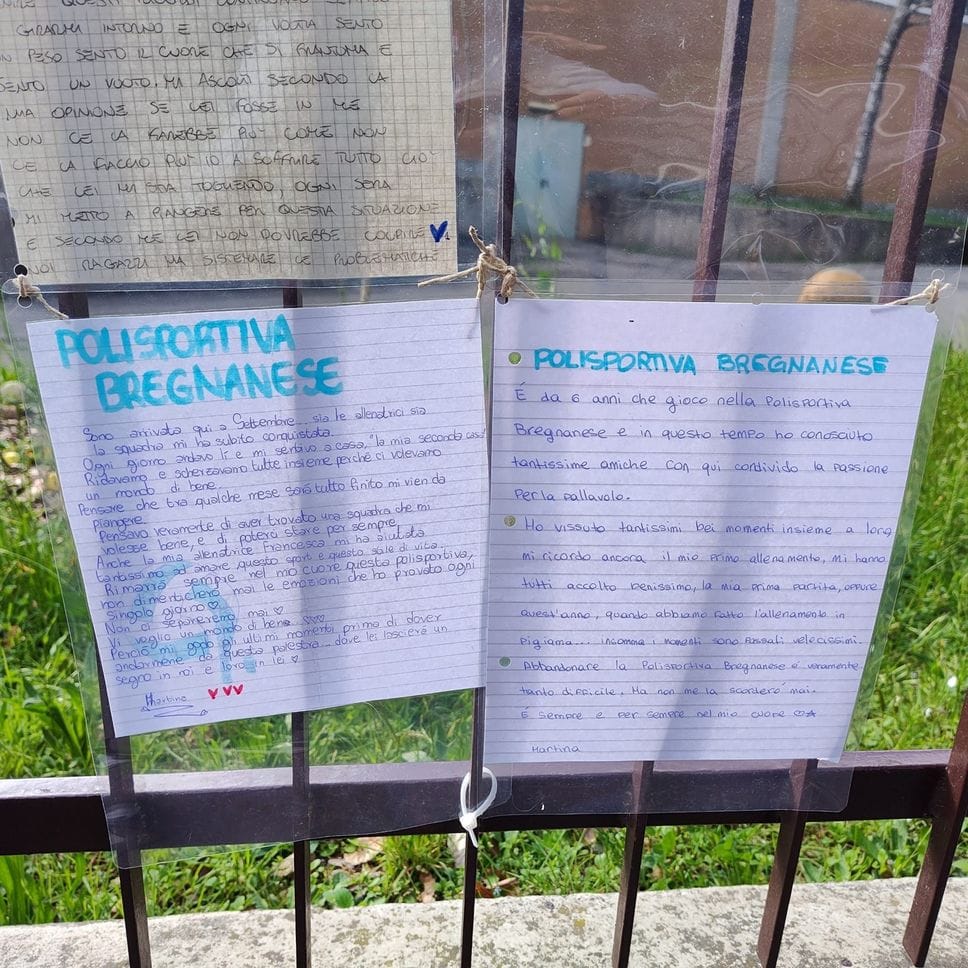 GIRARMI INTORNO E OGNI VOLTA SENTO
UN PESO SENTO IL CUORE CHE SI FRANTUMA E
SENTO UN VUOTO, MA ASCOLTI SECONDO LA
MIA OPINIONE SE LEI FOSSE IN ME
NON CE LA FAREBBE PIU' COME NON
CE LA FACCIO PIU' IO A SOFFRIRE TUTTO CIO'
CHE LEI MI STA TOGLIENDO, OGNI SERA
MI METTO A PIANGERE PER QUESTA SITUAZIONE
E SECONDO ME LEI NON DOVREBBE COLPIRE
NOI RAGAZZI MA SISTEMARE LE PROBLEMATICHE
POLISPORTIVA
BREGNANESE
Sono arrivata qui a Settembre... sia le allenatrici sia
la squadra mi ha subito conquistata.
Ogni giorno andavo lì e mi sentivo a casa, "la mia seconda casa"
Ridavamo e scherzavamo tutte insieme perché ci volevamo
un mondo di bene.
Pensare che tra qualche mese sarà tutto finito mi vien da
piangere.
Pensavo veramente di aver trovato una squadra che mi
volesse bene, e di poterci stare per sempre.
Anche la mia allenatrice Francesca mi ha aiutata
tantissimo ad amare questo sport e questo stile di vita.
Rimarrà sempre nel mio cuore questa polisportiva,
non dimenticherò mai le emozioni che ho provato ogni
singolo giorno ♡
Non ci separeremo mai ♡
Vi voglio un mondo di bene ♡♡♡
Perciò mi godo gli ultimi momenti prima di dover
andarmene da questa palestra... dove lei lascierà un
segno in noi e loro in lei ♡
Martina
♥♥♥
POLISPORTIVA BREGNANESE
É da 6 anni che gioco nella Polisportiva
Bregnanese e in questo tempo ho conosciuto
tantissime amiche con qui condivido la passione
per la pallavolo.
Ho vissuto tantissimi bei momenti insieme a loro,
mi ricordo ancora il mio primo allenamento, mi hanno
tutti accolto benissimo, la mia prima partita, oppure
quest'anno, quando abbiamo fatto l'allenamento in
pigiama... insomma i momenti sono passati velocissimi.
Abbandonare la Polisportiva Bregnanese é veramente
tanto difficile. Ma non me la scorderò mai.
É sempre e per sempre nel mio cuore ♡☆
Martina